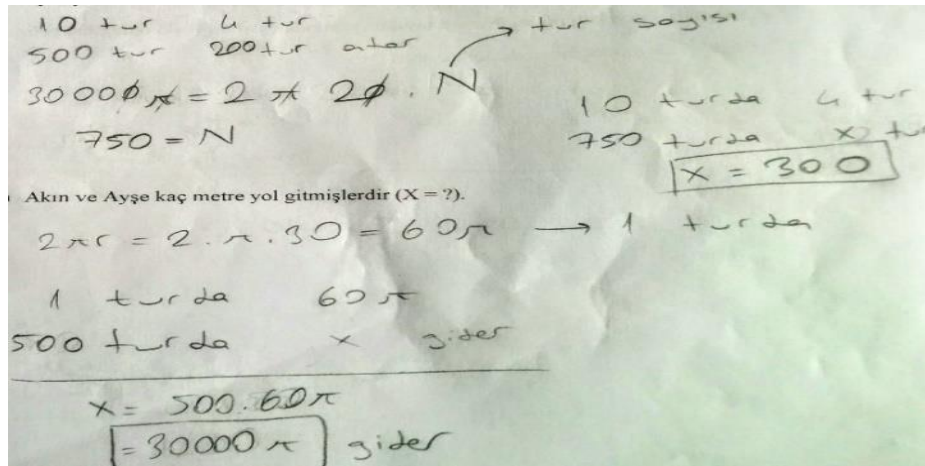 10 tur 4 tur
500 tur 200 tur atar
30000π = 2 π 20 . N → tur sayısı
750 = N
10 turda 4 tur
750 turda x tu
x = 300
Akın ve Ayşe kaç metre yol gitmişlerdir (X = ?).
2πr = 2 . π . 30 = 60π → 1 turda
1 turda 60π
500 turda x gider
x = 500.60π
= 30000 π gider